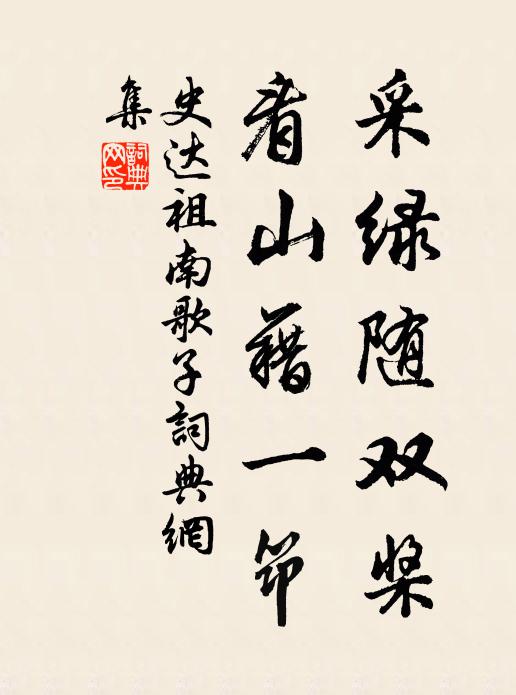 采绿随双桨
看山藉一筇
史达祖南歌子詞典網
集
詞典
網印